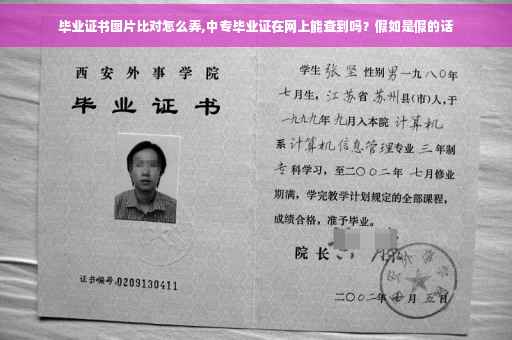 毕业证书图片比对怎么弄,中专毕业证在网上能查到吗？假如是假的话
西安外事学院
毕业证书
证书编号:0209130411
学生 张坚 性别男 一九八〇年
七月生，江苏省 苏州县(市)人，于
一九九九年 九月入本院 计算机
系 计算机信息管理专业 三 年制
专 科学习，至二〇〇二年 七月修业
期满，学完教学计划规定的全部课程，
成绩合格，准予毕业。
院长
二〇〇二年 月 五日